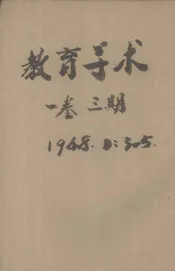 教育学术
一卷 三期
1948. 1:3-5.